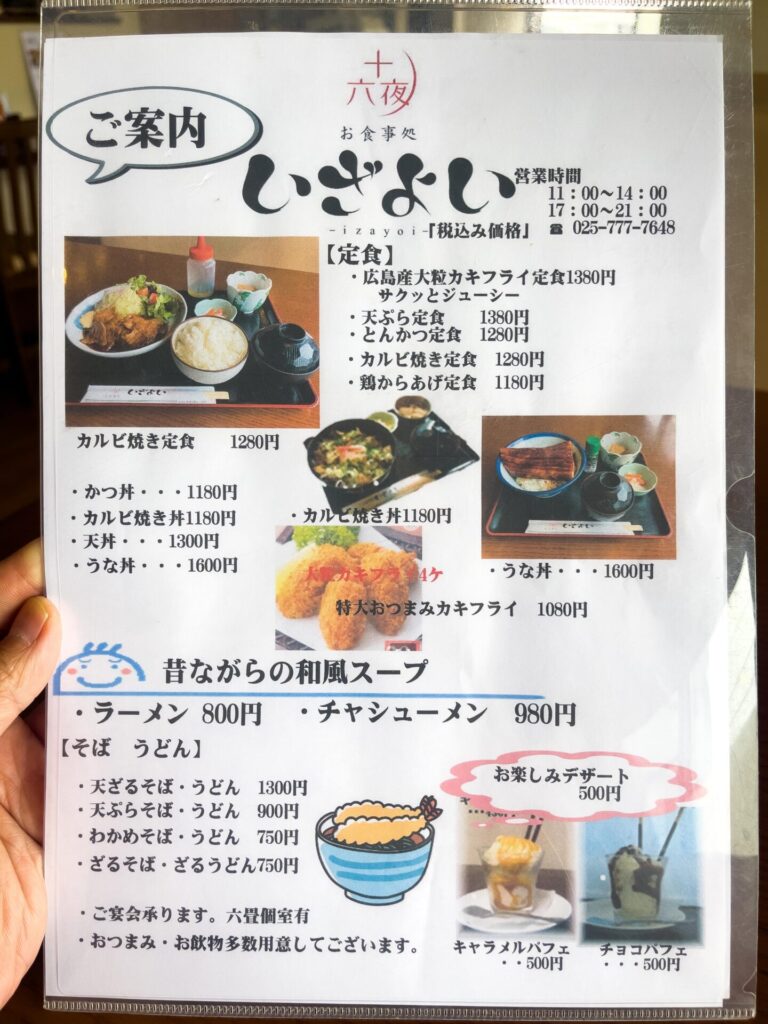 十六夜
ご案内
お食事処
いざよい
-izayoi-
営業時間
11：00～14：00
17：00～21：00
「税込み価格」 ☎ 025-777-7648
【定食】
・広島産大粒カキフライ定食1380円
サクッとジューシー
・天ぷら定食 1380円
・とんかつ定食 1280円
・カルビ焼き定食 1280円
・鶏からあげ定食 1180円
いざよい
カルビ焼き定食 1280円
・かつ丼・・・1180円
・カルビ焼き丼1180円
・天丼・・・1300円
・うな丼・・・1600円
・カルビ焼き丼1180円
大粒カキフライ4ケ
特大おつまみカキフライ 1080円
いざよい
・うな丼・・・1600円
昔ながらの和風スープ
・ラーメン 800円 ・チャシューメン 980円
【そば うどん】
・天ざるそば・うどん 1300円
・天ぷらそば・うどん 900円
・わかめそば・うどん 750円
・ざるそば・ざるうどん750円
・ご宴会承ります。六畳個室有
・おつまみ・お飲物多数用意してございます。
お楽しみデザート
500円
キャラメルパフェ
・・500円
チョコパフェ
・・・500円